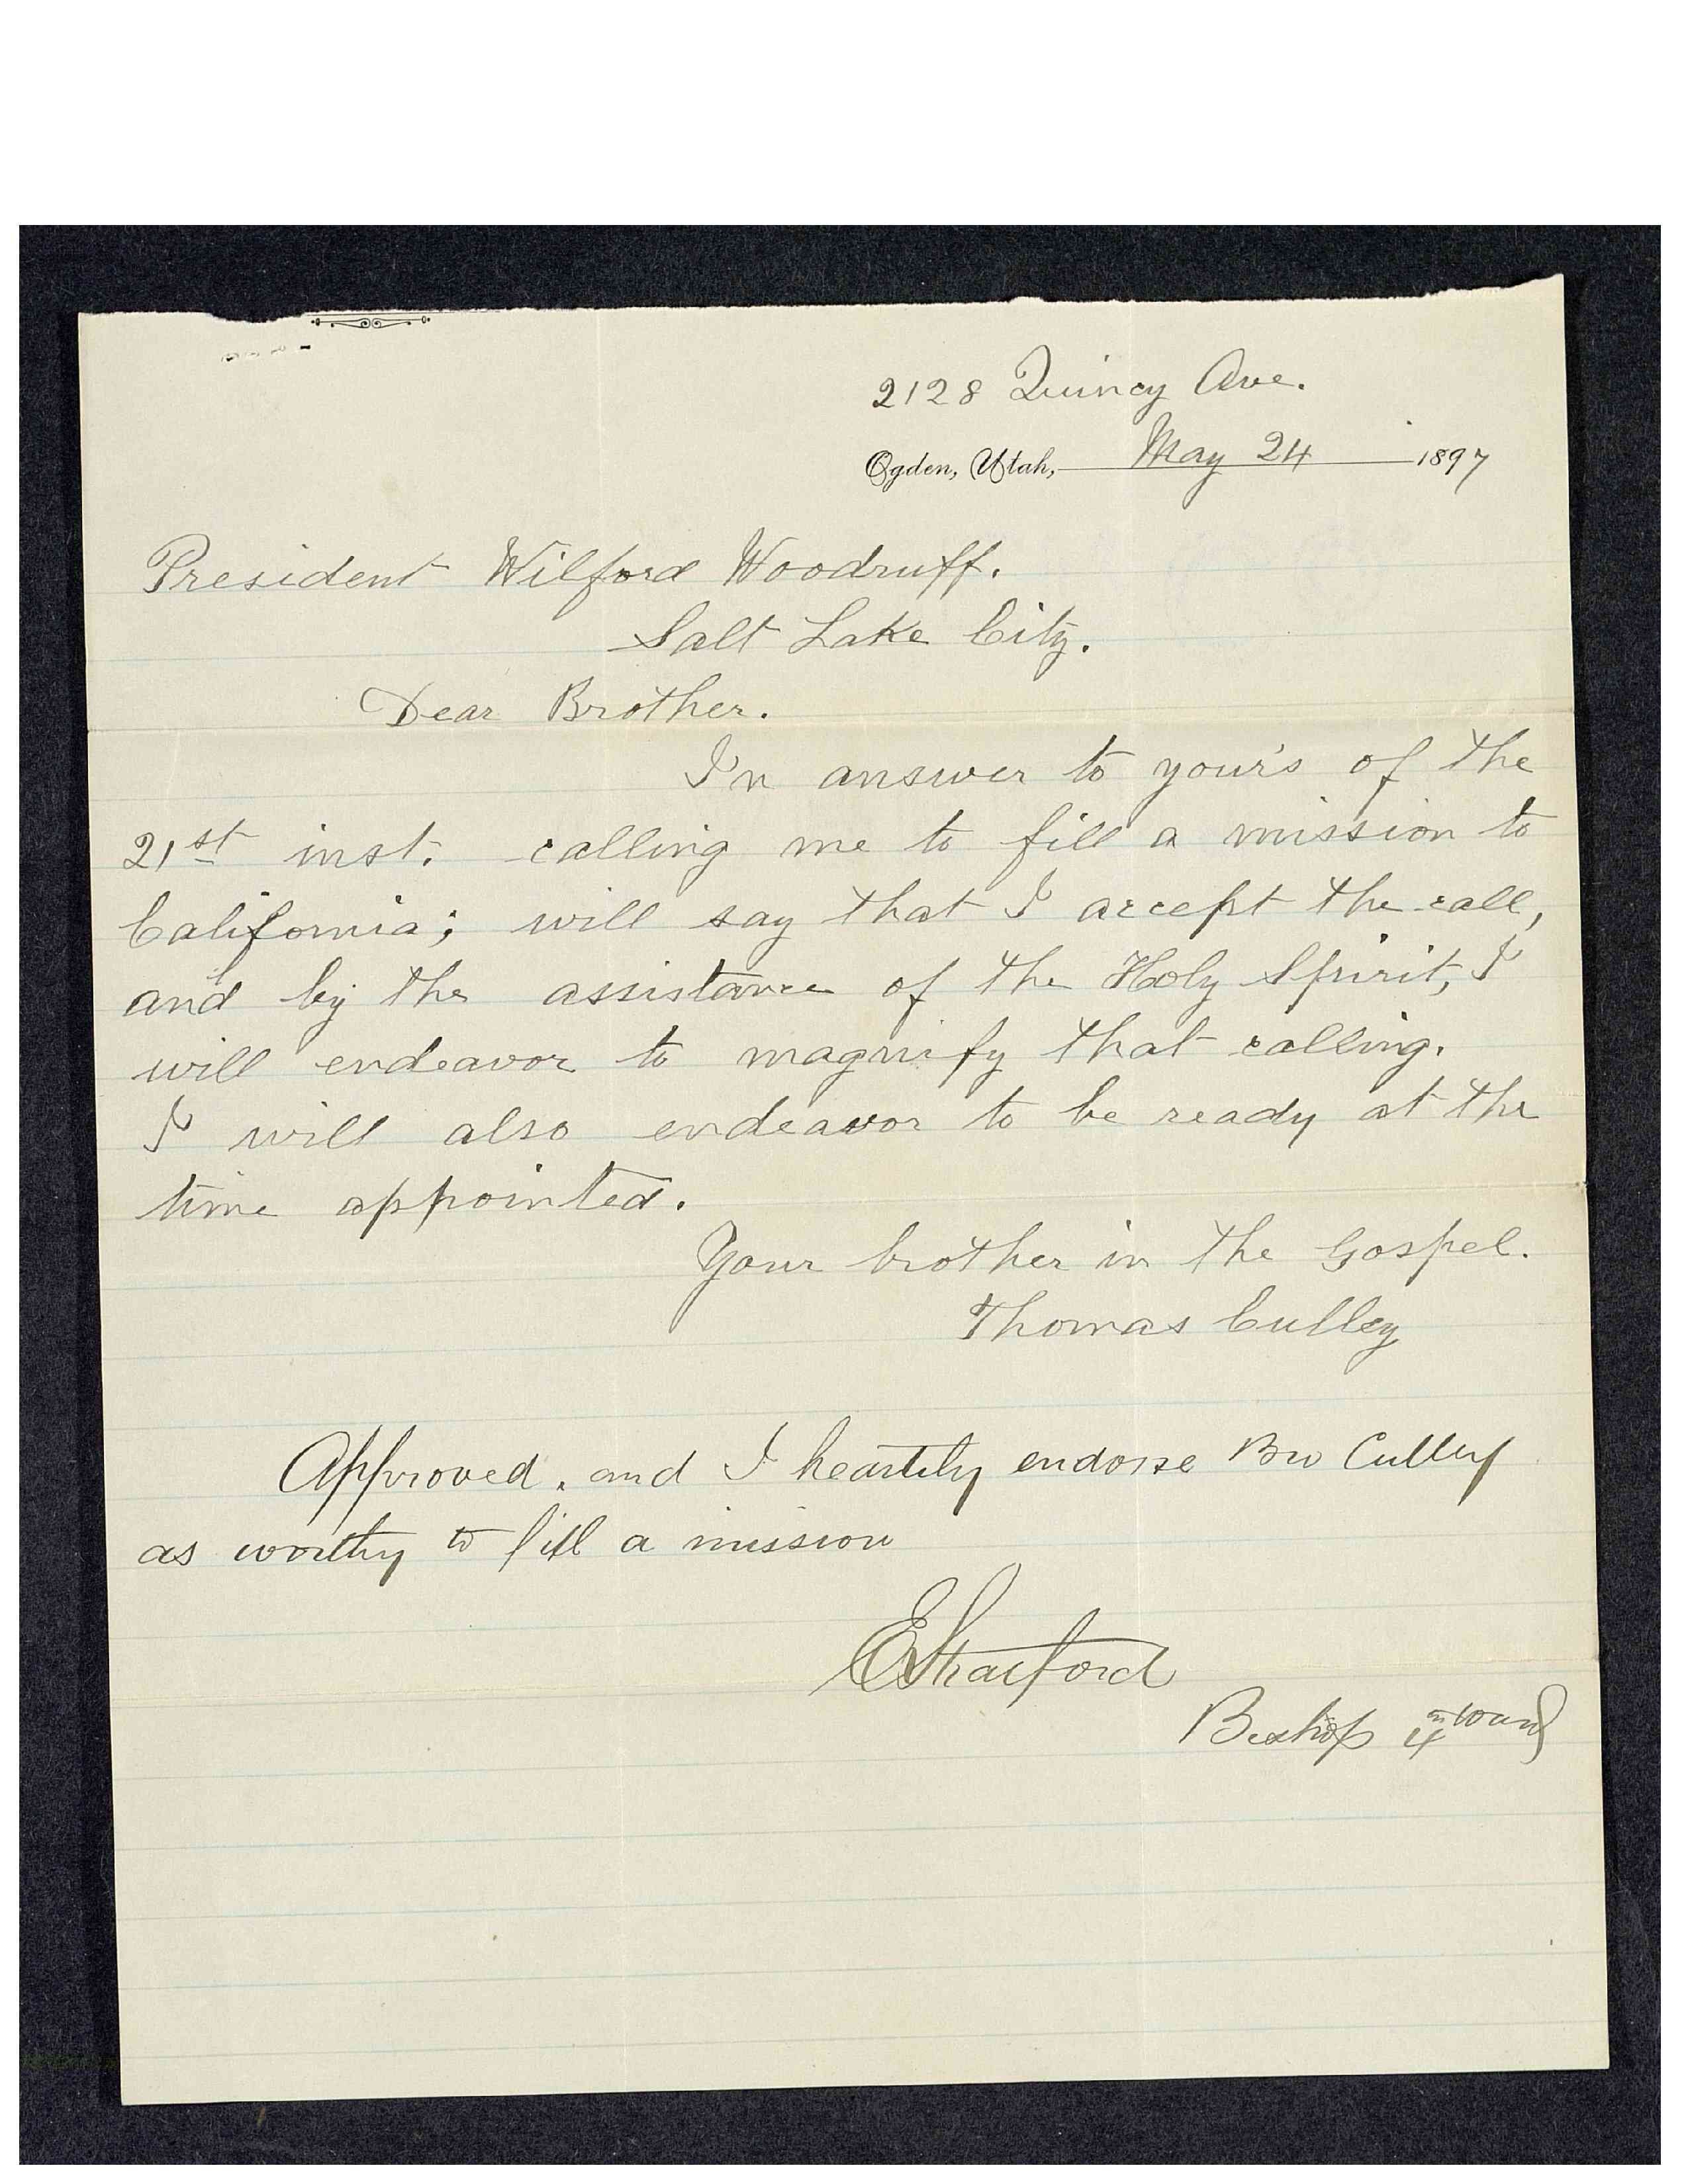 2128 Quincy Ave.
Ogden, Utah, May 24 1897
President Wilford Woodruff.
Salt Lake City.
Dear Brother.
In answer to your's of the
21st inst. calling me to fill a mission to
California; will say that I accept the call,
and by the assistance of the Holy Spirit, I
will endeavor to magnify that calling.
I will also endeavor to be ready at the
time appointed.
Your brother in the Gospel.
Thomas Culley
Approved, and I heartily endorse Bro Culley
as worthy to fill a mission
E Stratford
Bishop 4th Ward